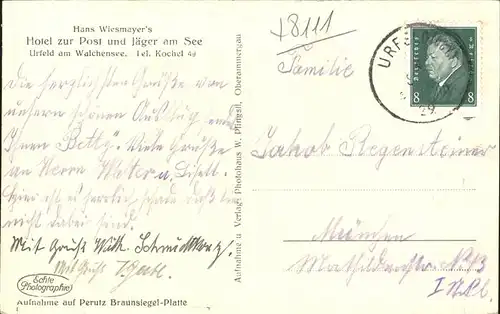 Hans Wiesmayer's
Hotel zur Post und Jäger am See
Urfeld am Walchensee. Tel. Kochel 4a
Die herzlichsten Grüße von
unsern schönen Ausflug
Ihnen Betty. Viele Grüße
an Herrn Meter u. Liesell.
Hier ist es herrlich schade daß
nicht dabei sind.
Mit Gruß Wilh.
Mit Gruß
Echte
Photographie
Aufnahme auf Perutz Braunsiegel-Platte
Aufnahme u. Verlag: Photohaus W. Pfingstl, Oberammergau
+8111
Familie
URF
29
Deutsches Reich
8 8
Jakob Regensteiner
München
Mathildenstr. No 13